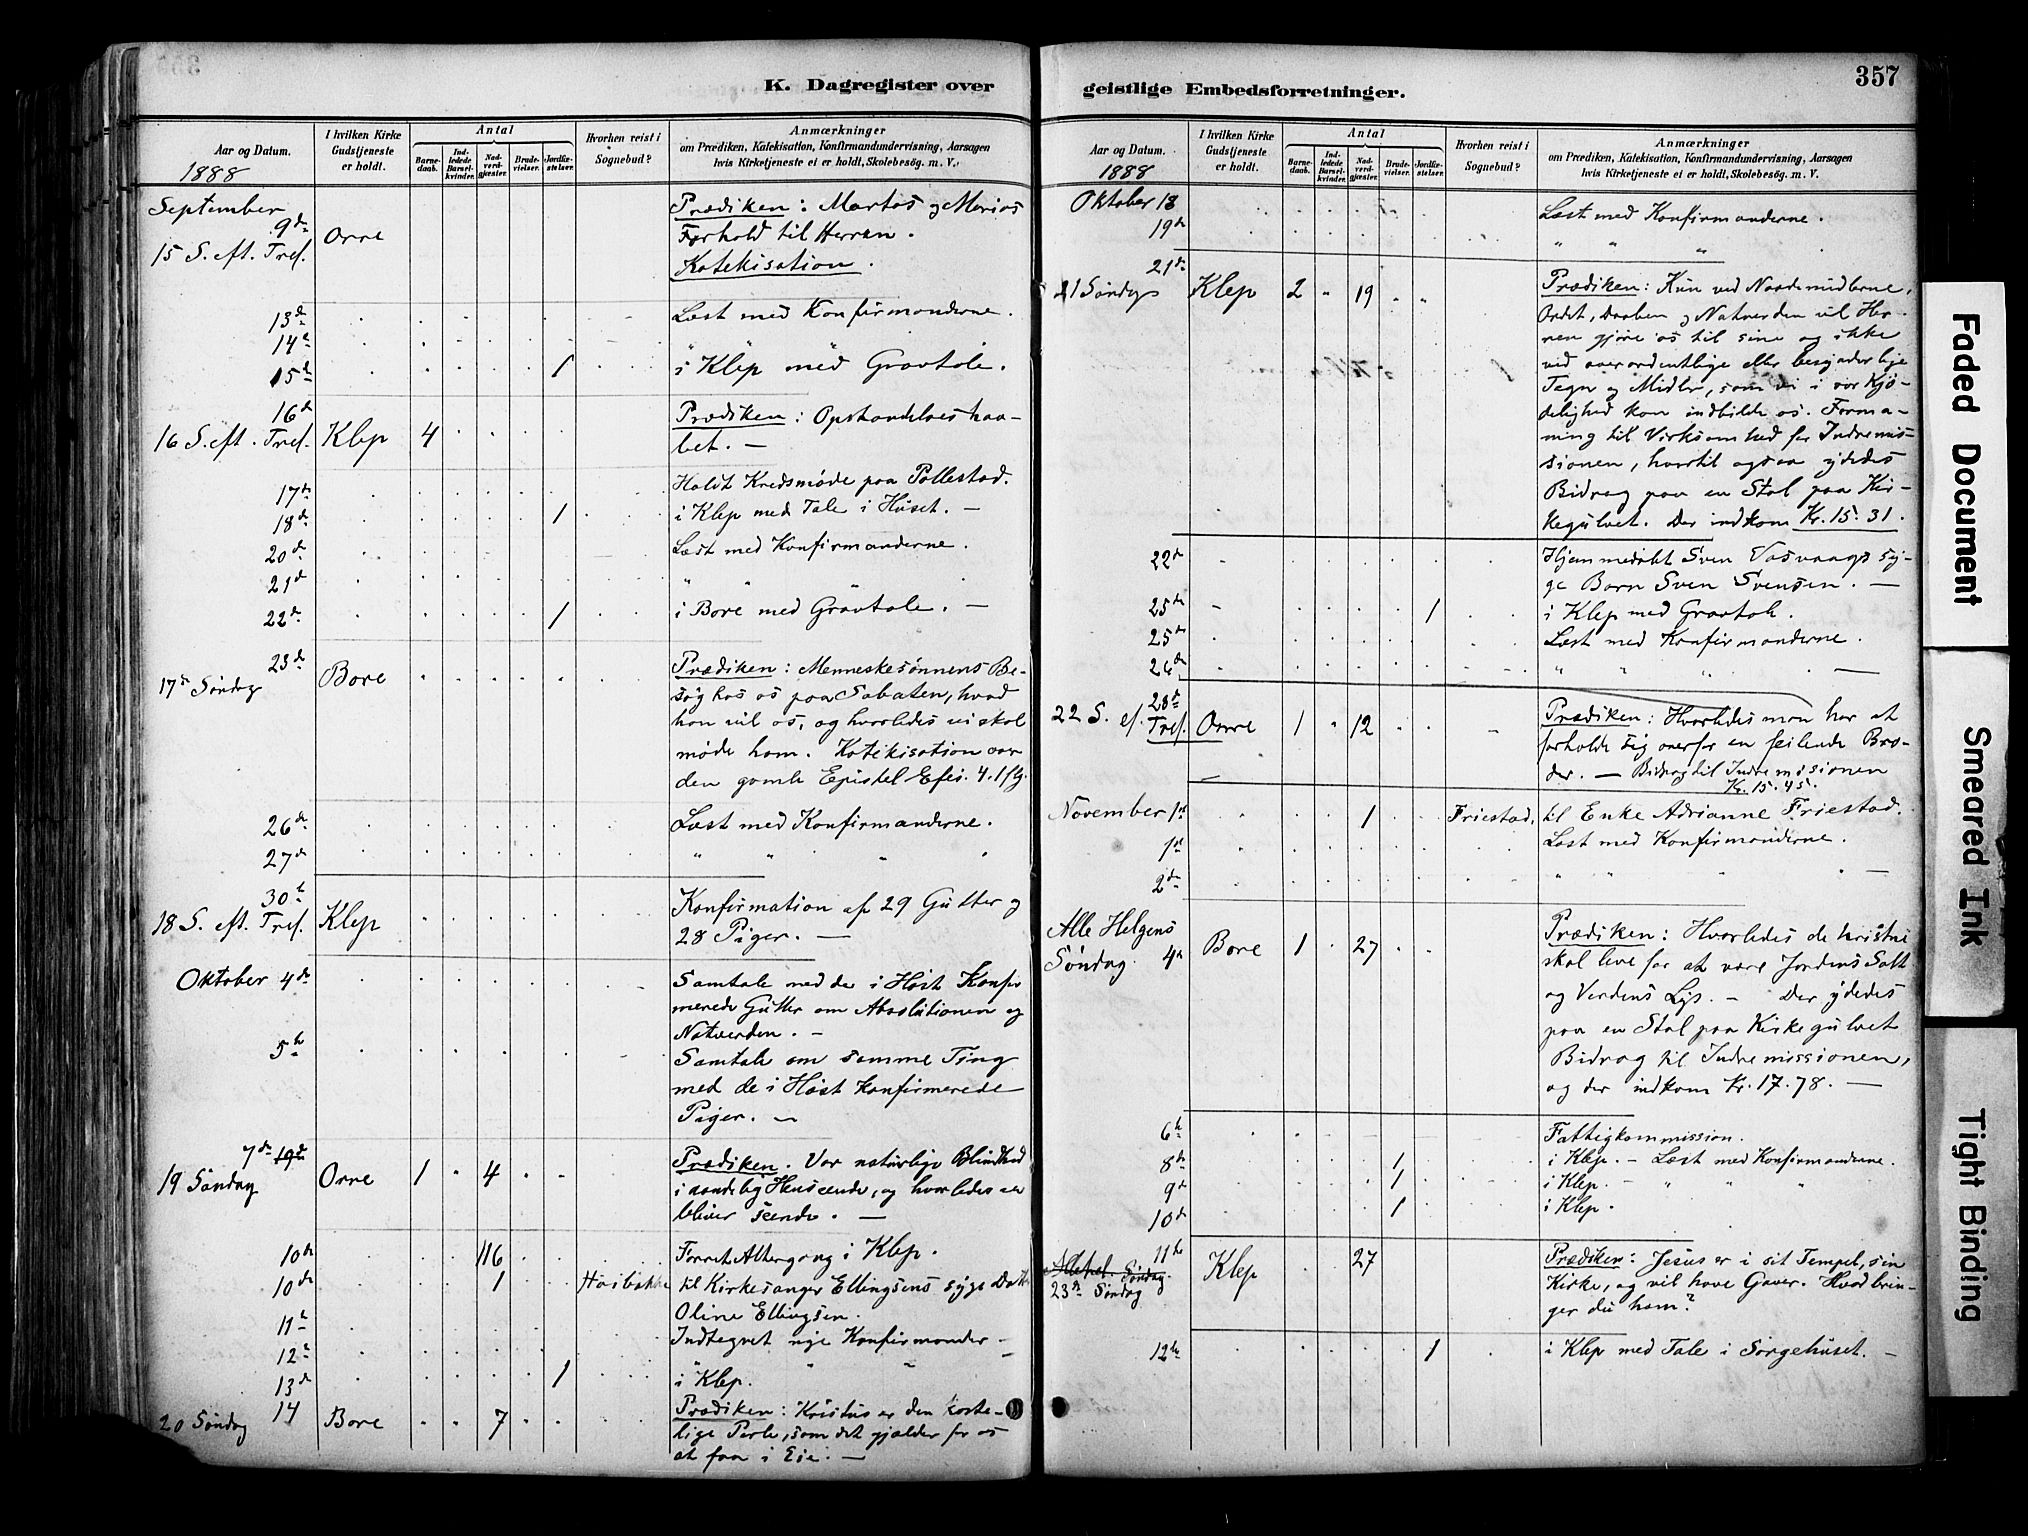 K. Dagregister over
Aar og Datum.
1888
I hvilken Kirke Gudstjeneste er holdt.
Antal
Barne-daab.
Ind-ledede Barsel-kvinder.
Nad-verd-gjæster.
Brude-vielser.
Jordfæ-stelser.
Hvorhen reist i Sognebud?
Anmærkninger
om Prædiken, Katekisation, Konfirmandundervisning, Aarsagen
hvis Kirketjeneste ei er holdt, Skolebesøg. m. V.
September
9de
15 S. eft. Tref. Orre Prædiken: Martas og Marias
Forhold til Herren.
Katekisation.
13de Læst med Konfirmanderne.
14de " "
15de 1 i Klep med Gravtale.
16de
16 S. eft. Tref. Klep 4 Prædiken: Opstandelseshaa-
bet. —
17de Holdt Kredsmøde paa Pollestad.
18de 1 i Klep med Tale i Huset. —
20de Læst med Konfirmanderne.
21de " "
22de 1 i Bore med Gravtale. —
23de
17de Søndag Bore Prædiken: Menneskesønnens Be-
søg hos os paa Sabaten, hvad
han vil os, og hvorledes vi skal
møde ham. Katekisation over
den gamle Epistel Efes. 4.1 flg.
26de Læst med Konfirmanderne.
27de " " "
30te
18 S. eft. Tref. Klep Konfirmation af 29 Gutter og
28 Piger. —
Oktober 4de Samtale med de i Høst Konfir
merede Gutter om Absolutionen og
Natverden. —
5te Samtale om samme Ting
med de i Høst Konfirmerede
Piger. —
7de 19de
19 Søndag Orre 1 " 4 Prædiken. Vor naturlige Blindhed
i aandelig Henseende, og hvorledes vi
bliver seende. —
10de 116 Forret Altergang i Klep.
10de 1 til Kirkesanger Ellingsens syge Datt.
Oline Ellingsen.
11te Indtegnet nye Konfirmander —
12te " " "
13de 1 i Klep.
14
20 Søndag Bore 7 Prædiken: Kristus er den koste-
lige Perle, som det gjælder for os
at faa i Eie. —
geistlige Embedsforretninger.
357
Aar og Datum.
1888
I hvilken Kirke Gudstjeneste er holdt.
Antal
Barne-daab.
Ind-ledede Barsel-kvinder.
Nad-verd-gjæster.
Brude-vielser.
Jordfæ-stelser.
Hvorhen reist i Sognebud?
Anmærkninger
om Prædiken, Katekisation, Konfirmandundervisning, Aarsagen
hvis Kirketjeneste ei er holdt, Skolebesøg. m. V.
Oktober 18 Læst med Konfirmanderne.
19de " " "
21de
21 Søndag Klep 2 " 19 Prædiken: Kun ved Naademidlerne,
Ordet, Daaben og Natverden vil Her-
ren gjøre os til sine og ikke
ved overordentlige eller besynderlige
Tegn og Midler, som vi i vor Kjø-
delighed kan indbilde os. Forma-
ning til Virksomhed for Indremis-
sionen, hvortil ogsaa ydedes
Bidrag paa en Stol paa Kir-
kegulvet. Der indkom Kr. 15.31.
22de Hjemmedøbt Sven Vasvaags sy-
ge Barn Sven Svensen. —
25de 1 i Klep med Gravtale.
25de Læst med Konfirmanderne.
26de " " " —
28de
22 S. ef. Tref. Orre 1 " 12 Prædiken: Hvorledes man har at
forholde sig overfor en feilende Bro-
der. — Bidrag til Indremissionen
Kr. 15.45.
November 1ste 1 Friestad. til Enke Adrianne Friestad.
1ste Læst med Konfirmanderne.
2den " " " " —
Alle Helgens
Søndag 4de Bore 1 27 Prædiken: Hvorledes de kristne
skal leve for at være Jordens Salt
og Verdens Lys. — Der ydedes
paa en Stol paa Kirkegulvet
Bidrag til Indremissionen,
og der indkom Kr. 17.78. —
6te Fattigkommission.
8de 1 i Klep. — Læst med Konfirmanderne.
9de 1 i Klep. — " " "
10de 1 i Klep.
11te
23de Søndag Klep 27 Prædiken: Jesus er i sit Tempel, sin
Kirke, og vil have Gaver. Hvad brin-
ger du ham?
12te 1 i Klep med Tale i Sørgehuset. —
Faded Document
Smeared Ink
Tight Binding